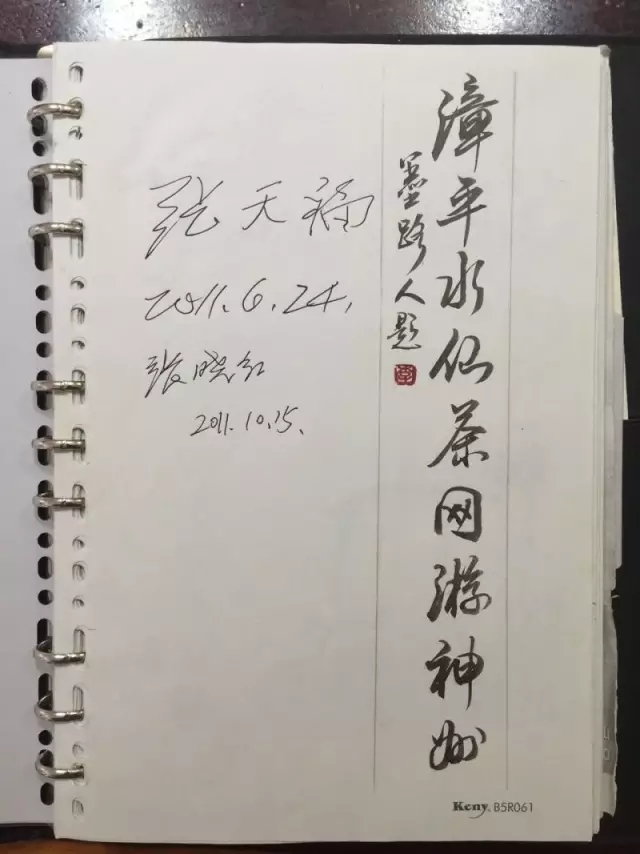 漳平水仙茶网游神州
墨路人题
张天福
2011.6.24.
张晓红
2011.10.15.
Keny. B5R061